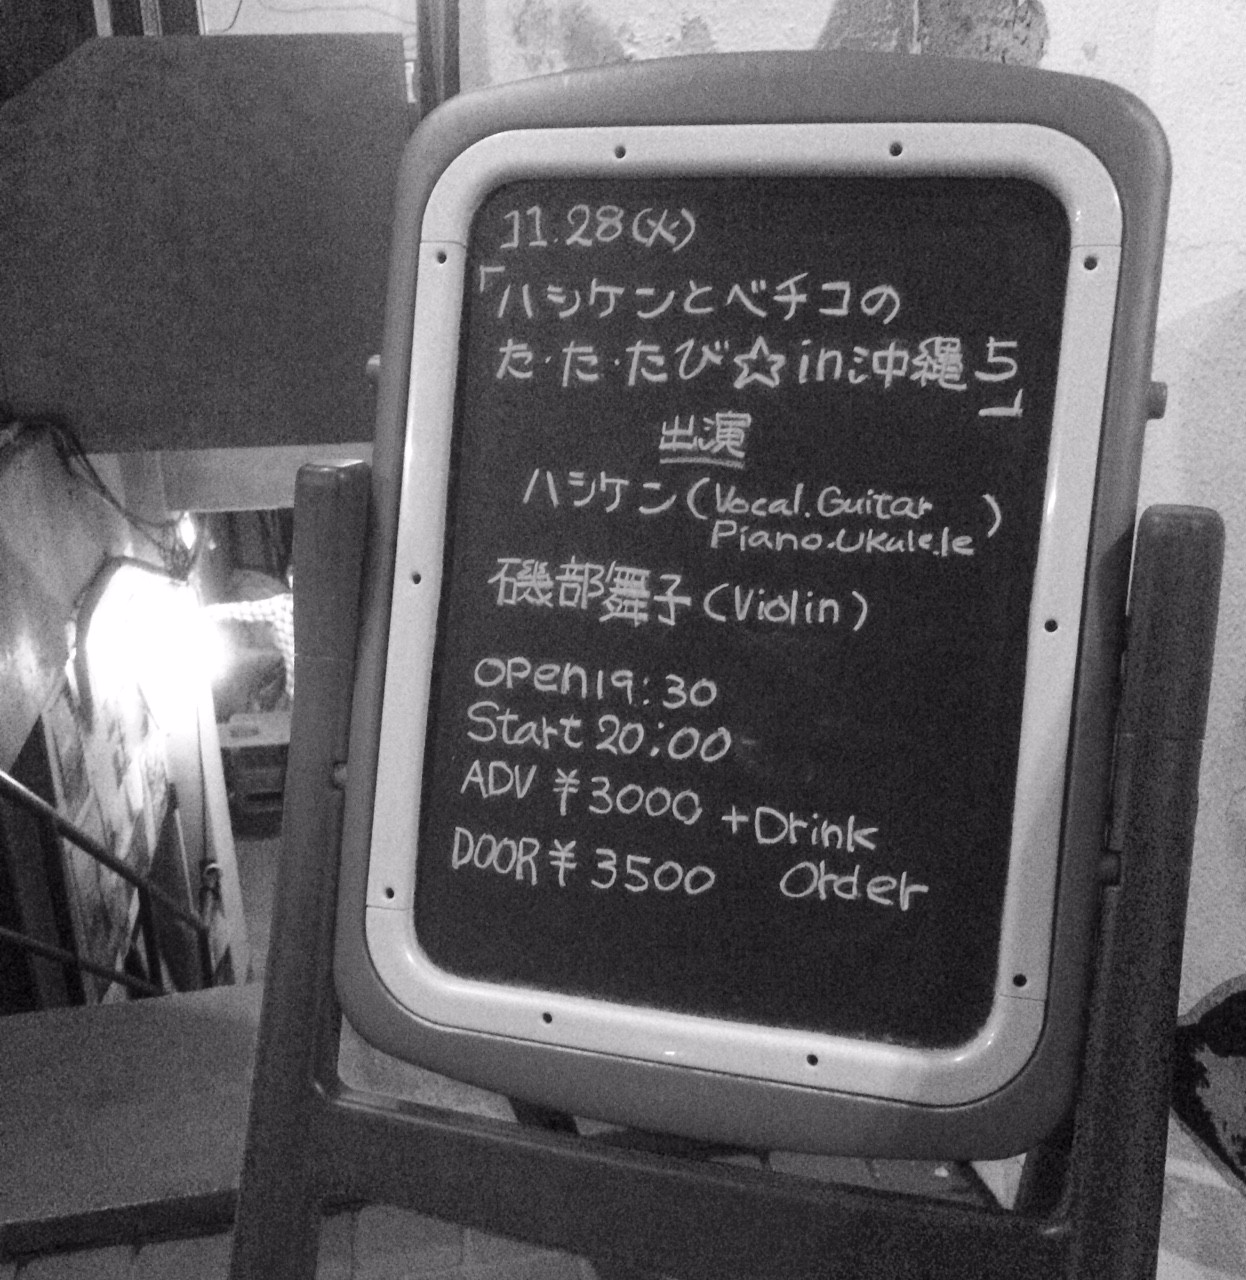 11.28(火)
「ハシケンとベチコの
た・た・たび☆in沖縄5」
出演
ハシケン(Vocal.Guitar
Piano.Ukulele)
磯部舞子(Violin)
open19:30
Start 20:00
ADV ¥3000 +Drink
DOOR ¥3500 Order